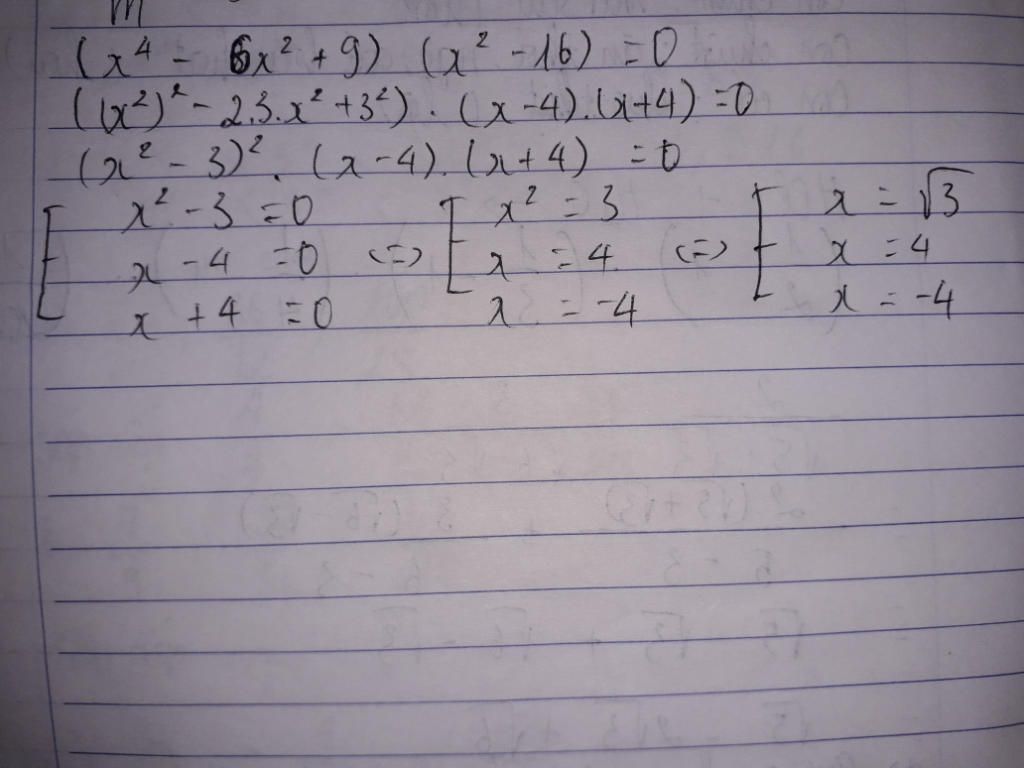 m
(x⁴ - 6x² + 9) (x² - 16) = 0
((x²)² - 2.3.x² + 3²) . (x - 4).(x + 4) = 0
(x² - 3)² . (x - 4) . (x + 4) = 0
[ x² - 3 = 0 [ x² = 3 [ x = √3
x - 4 = 0 <=> x = 4 <=> x = 4
x + 4 = 0 x = -4 x = -4